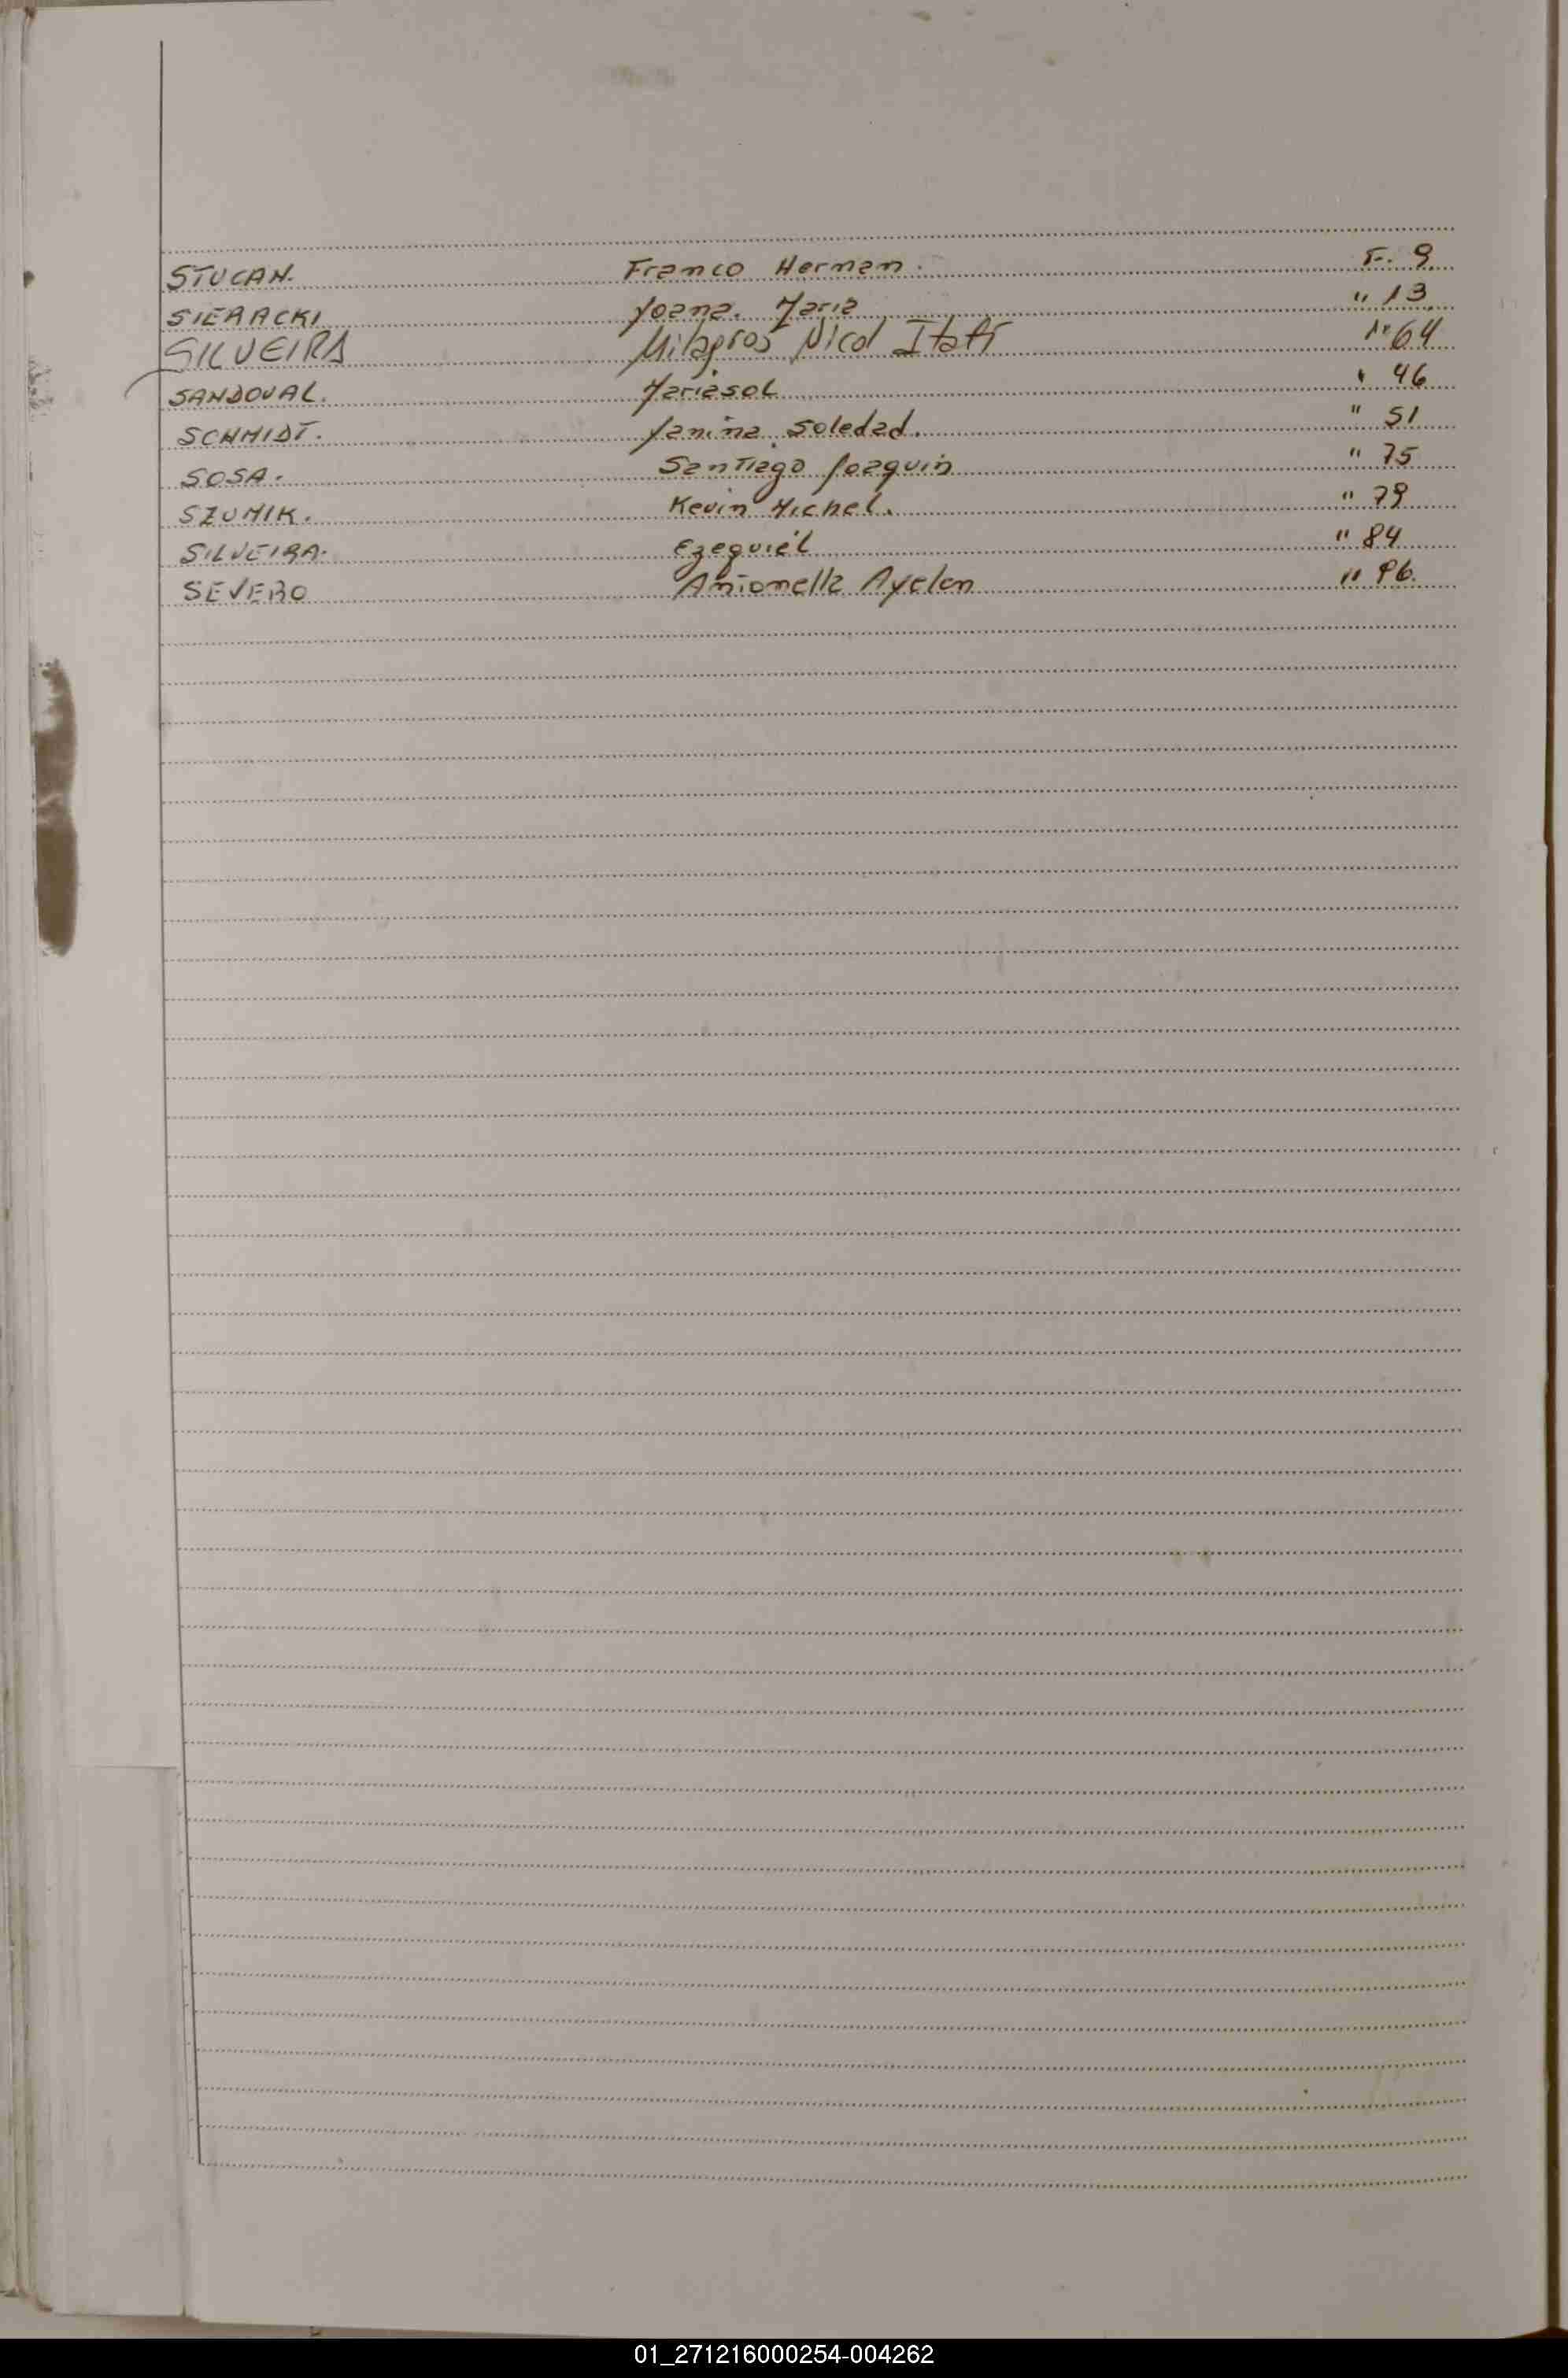 STUCAN. Franco Hernan. F. 9.
SIERACKI Yoana. Maria " 13
SILVEIRA Milagros Nicol Itatí " 64
SANDOVAL. Mariasol " 46
SCHMIDT. Yanina Soledad. " 51
SOSA. Santiago Joaquin " 75
SZUMIK. Kevin Michel. " 79
SILVEIRA. Ezequiel " 84
SEVERO Antonella Ayelen " 96.
01_271216000254-004262